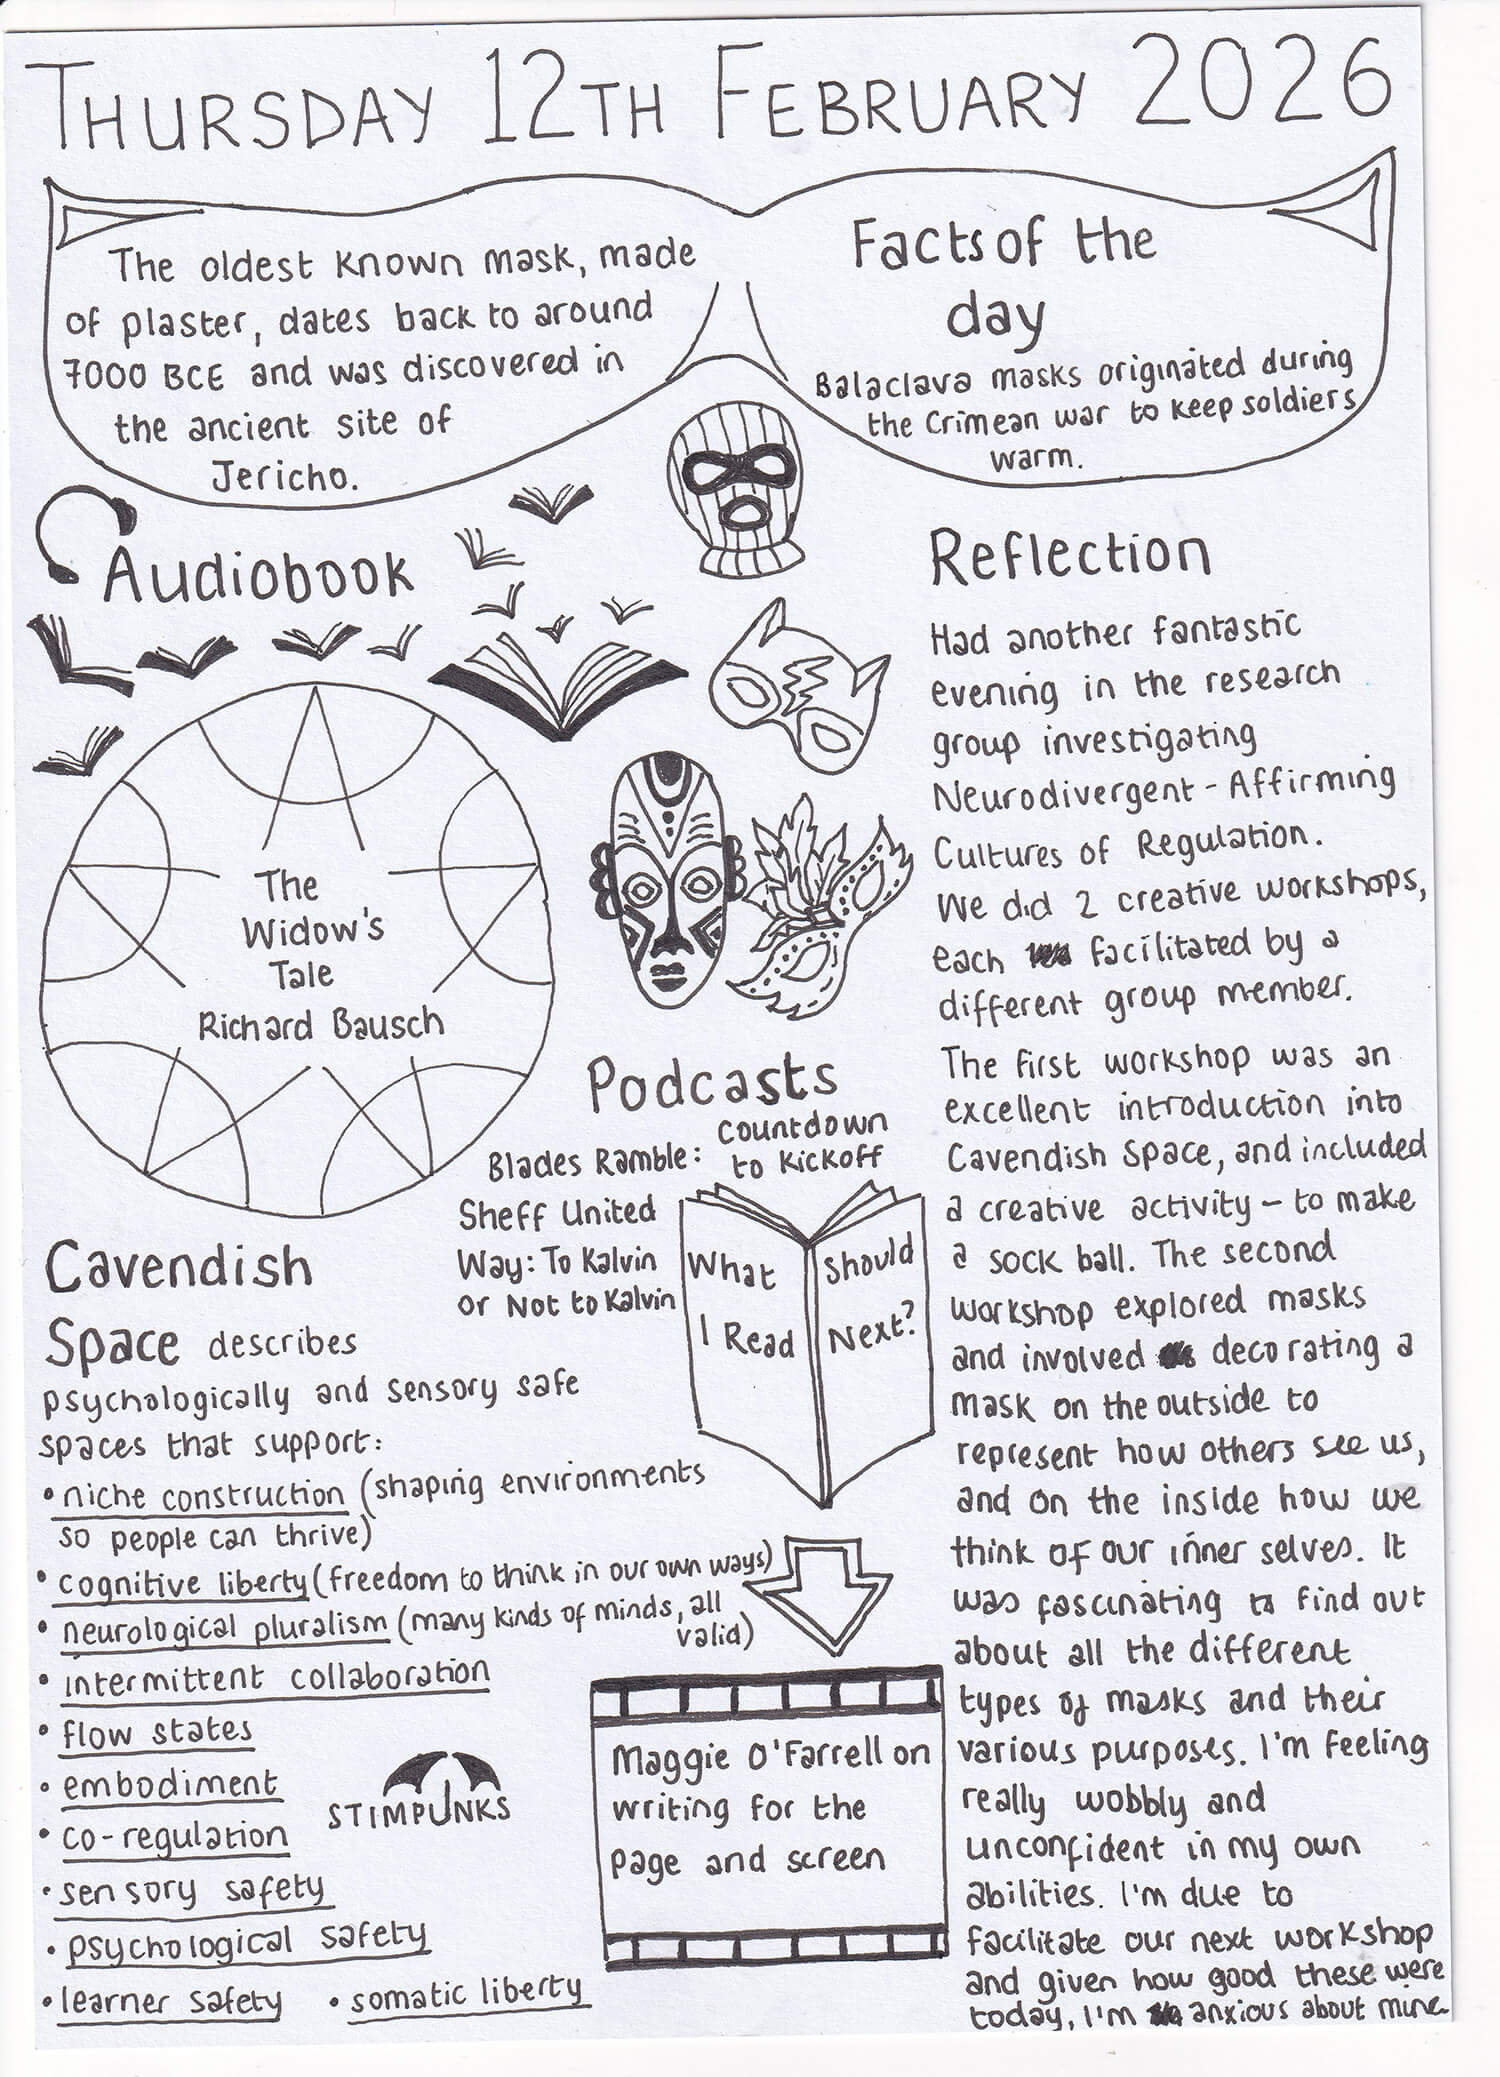 THURSDAY 12TH FEBRUARY 2026
The oldest known mask, made
of plaster, dates back to around
7000 BCE and was discovered in
the ancient site of
Jericho.
Facts of the
day
Balaclava masks originated during
the Crimean war to keep soldiers
warm.
Audiobook
The
Widow's
Tale
Richard Bausch
Podcasts
Blades Ramble: Countdown
to Kickoff
Sheff United
Way: To Kalvin
or Not to Kalvin
What
I Read
Should
Next?
Maggie O'Farrell on
writing for the
page and screen
Cavendish
Space describes
psychologically and sensory safe
spaces that support:
• niche construction (shaping environments
so people can thrive)
• cognitive liberty (freedom to think in our own ways)
• neurological pluralism (many kinds of minds, all
valid)
• intermittent collaboration
• flow states
• embodiment
• co-regulation
• sensory safety
• psychological safety
• learner safety • somatic liberty
STIMPUNKS
Reflection
Had another fantastic
evening in the research
group investigating
Neurodivergent - Affirming
Cultures of Regulation.
We did 2 creative workshops,
each facilitated by a
different group member.
The first workshop was an
excellent introduction into
Cavendish Space, and included
a creative activity – to make
a sock ball. The second
workshop explored masks
and involved decorating a
mask on the outside to
represent how others see us,
and on the inside how we
think of our inner selves. It
was fascinating to find out
about all the different
types of masks and their
various purposes. I'm feeling
really wobbly and
unconfident in my own
abilities. I'm due to
facilitate our next workshop
and given how good these were
today, I'm anxious about mine.